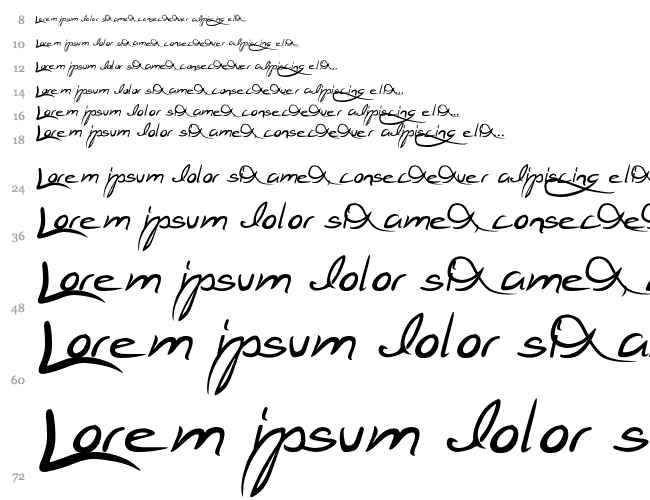 8 Lorem ipsum dolor sit amet, consectetuer adipiscing elit...
10 Lorem ipsum dolor sit amet, consectetuer adipiscing elit...
12 Lorem ipsum dolor sit amet, consectetuer adipiscing elit...
14 Lorem ipsum dolor sit amet, consectetuer adipiscing elit...
16 Lorem ipsum dolor sit amet, consectetuer adipiscing elit...
18 Lorem ipsum dolor sit amet, consectetuer adipiscing elit...
24 Lorem ipsum dolor sit amet, consectetuer adipiscing elit
36 Lorem ipsum dolor sit amet, consectetu
48 Lorem ipsum dolor sit amet,
60 Lorem ipsum dolor sit a
72 Lorem ipsum dolor s